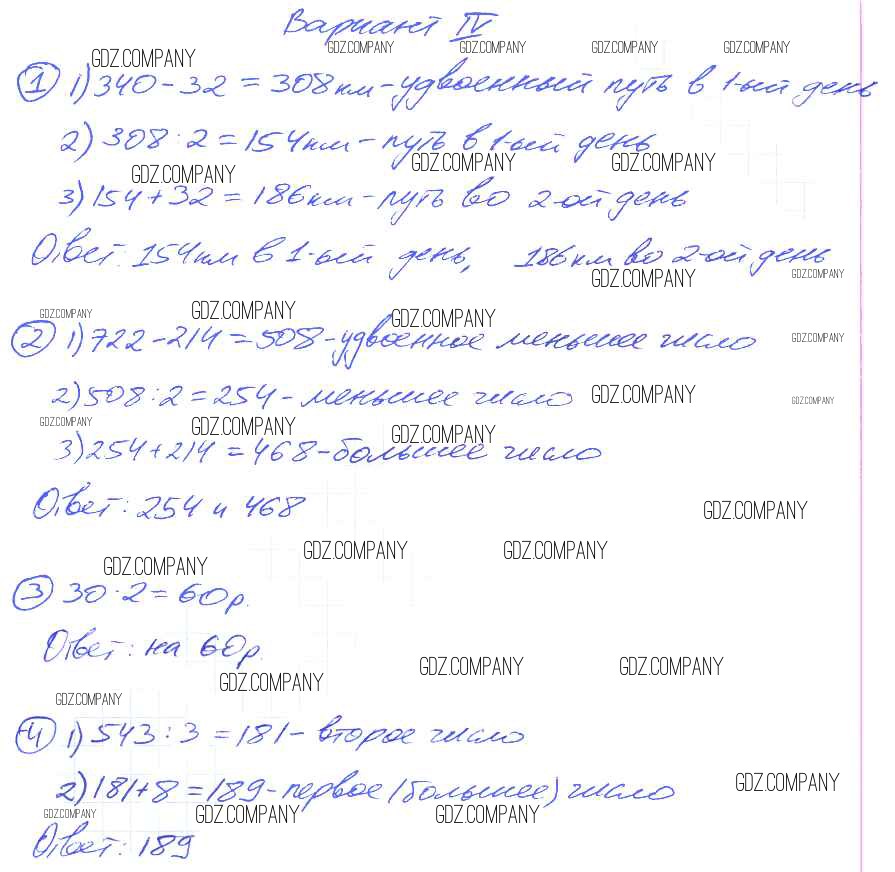 Вариант IV
GDZ.COMPANY GDZ.COMPANY GDZ.COMPANY GDZ.COMPANY GDZ.COMPANY
1 1) 340 - 32 = 308 км - удвоенный путь в 1-ый день
2) 308 : 2 = 154 км - путь в 1-ый день
GDZ.COMPANY GDZ.COMPANY GDZ.COMPANY
3) 154 + 32 = 186 км - путь во 2-ой день
Ответ: 154 км в 1-ый день, 186 км во 2-ой день
GDZ.COMPANY GDZ.COMPANY
GDZ.COMPANY GDZ.COMPANY GDZ.COMPANY
2 1) 722 - 214 = 508 - удвоенное меньшее число GDZ.COMPANY
2) 508 : 2 = 254 - меньшее число GDZ.COMPANY GDZ.COMPANY
GDZ.COMPANY GDZ.COMPANY GDZ.COMPANY
3) 254 + 214 = 468 - большее число
Ответ: 254 и 468 GDZ.COMPANY
GDZ.COMPANY GDZ.COMPANY GDZ.COMPANY
3 30 · 2 = 60 р.
Ответ: на 60 р.
GDZ.COMPANY GDZ.COMPANY GDZ.COMPANY
GDZ.COMPANY
4 1) 543 : 3 = 181 - второе число
2) 181 + 8 = 189 - первое (большее) число GDZ.COMPANY
GDZ.COMPANY GDZ.COMPANY GDZ.COMPANY
Ответ: 189